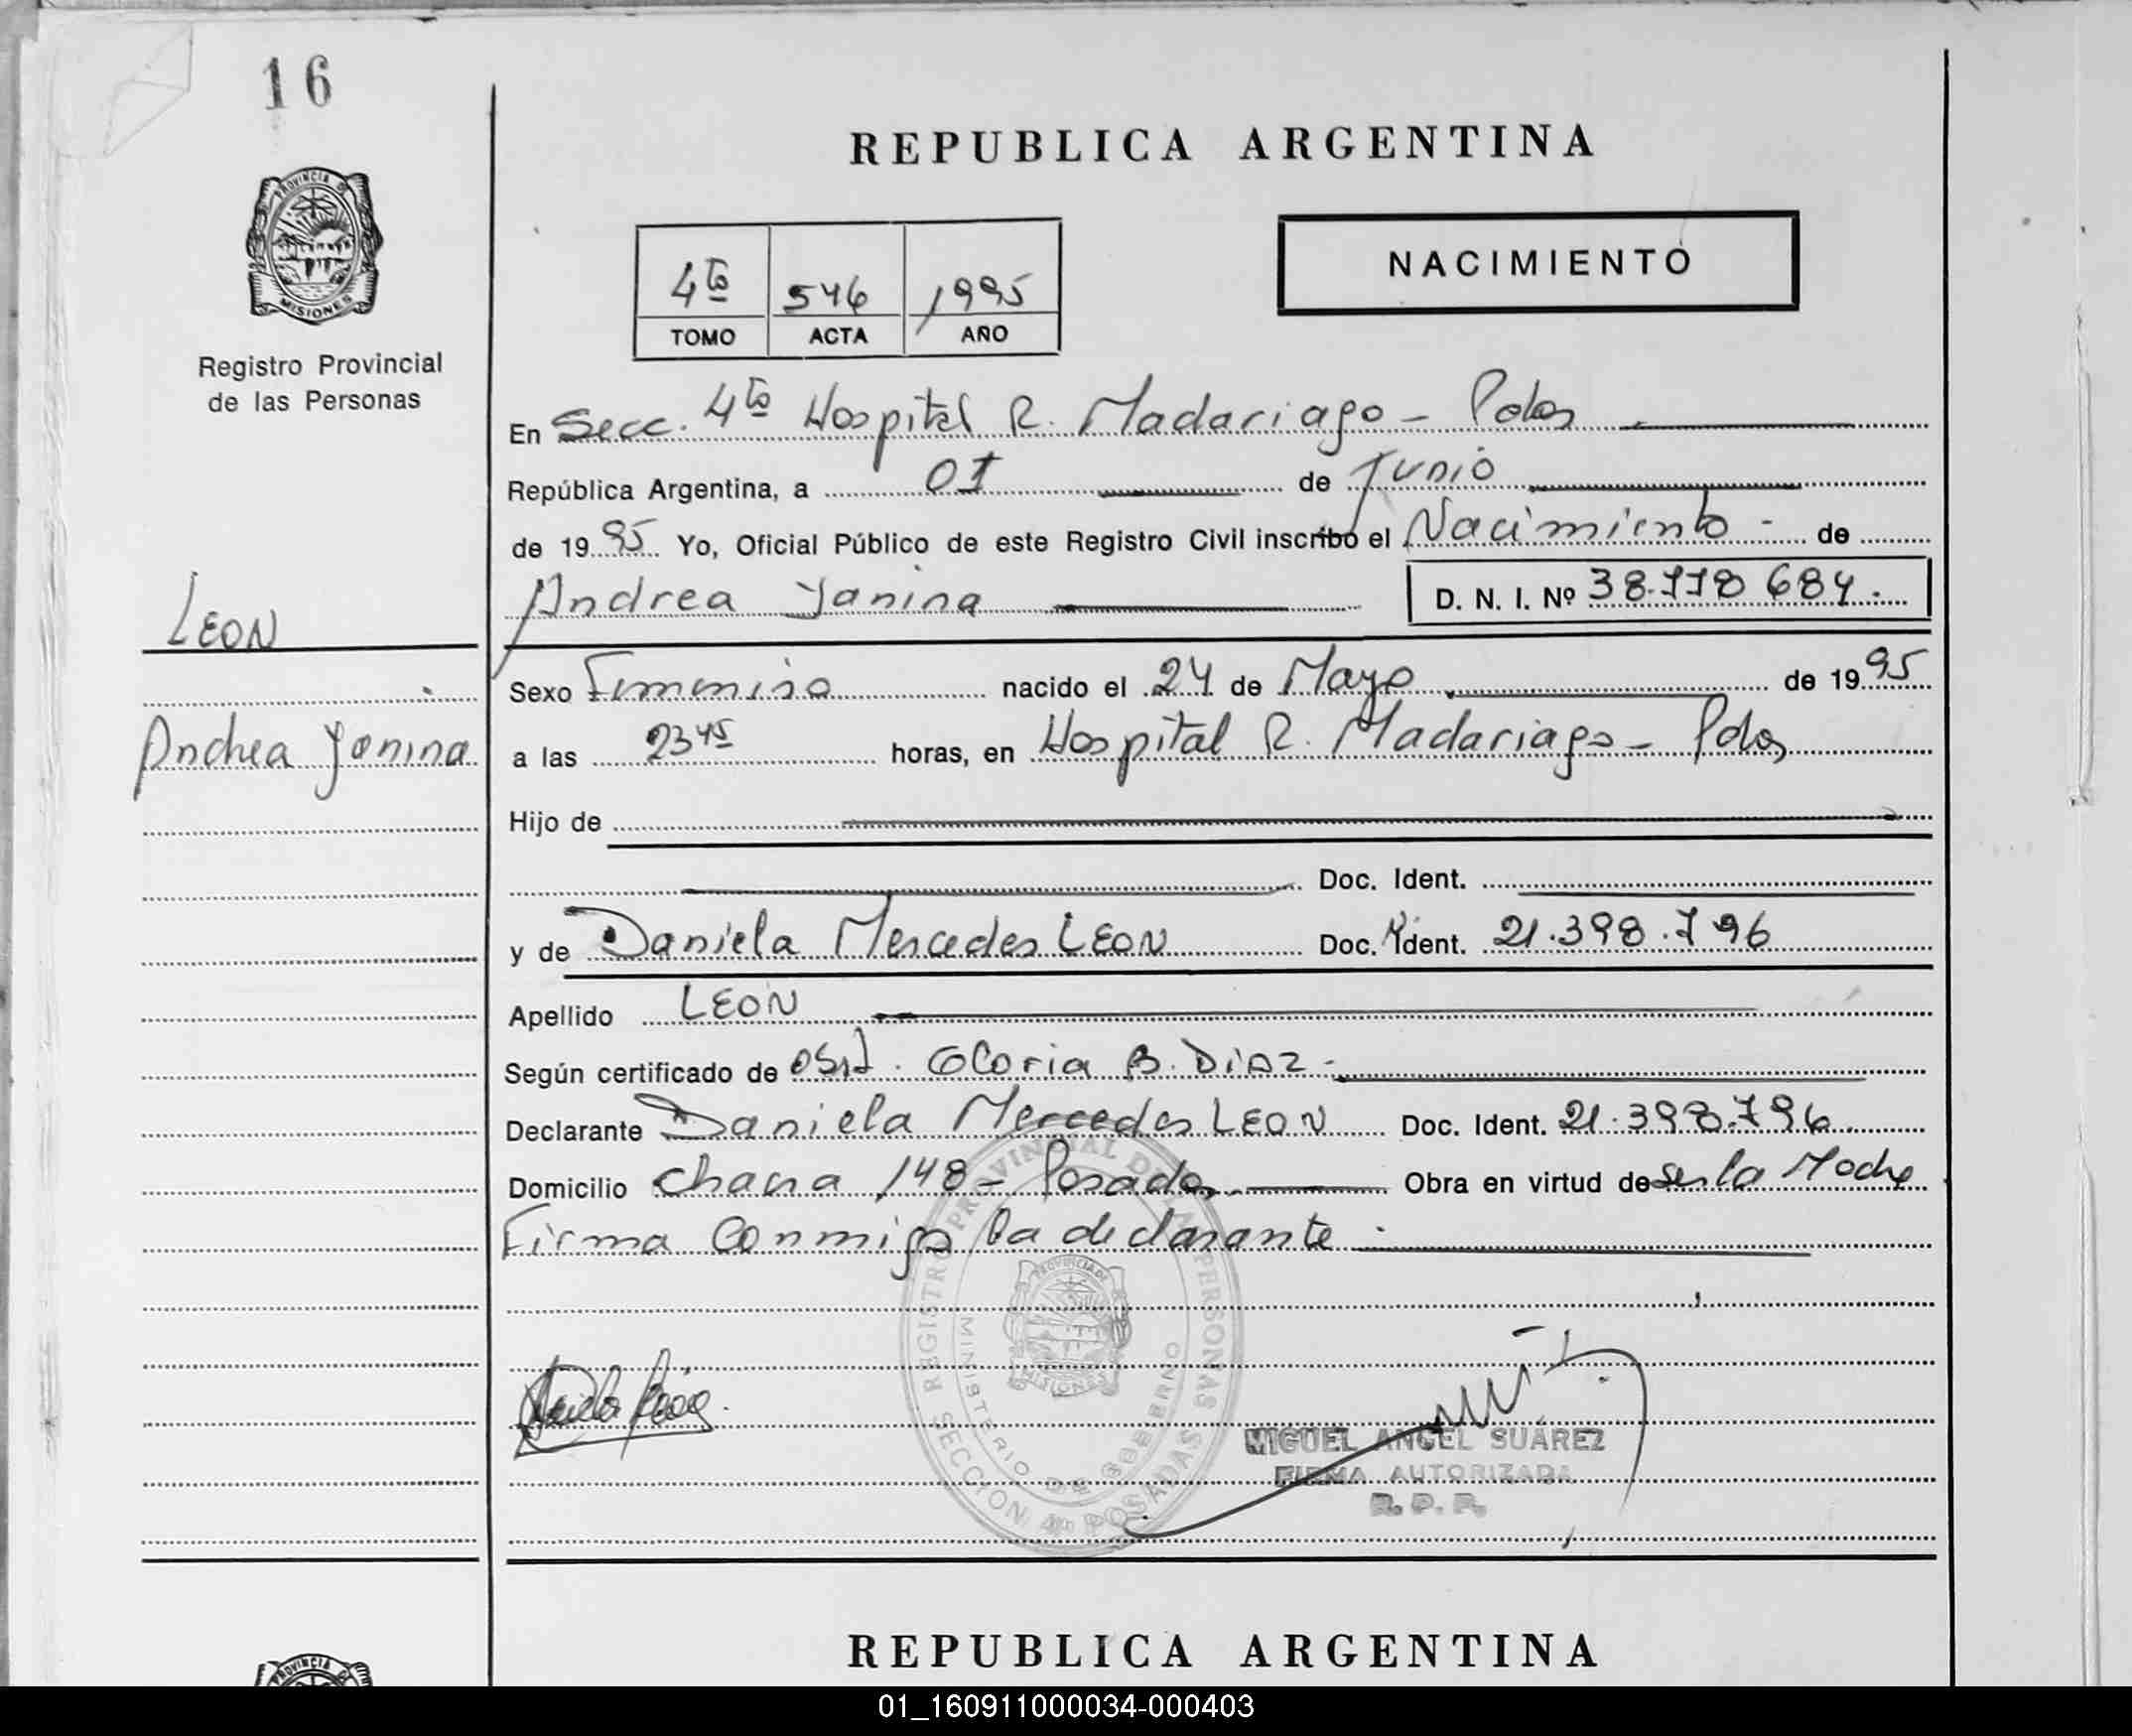 16
REPUBLICA ARGENTINA
PROVINCIA DE
MISIONES
NACIMIENTO
4to 546 1995
TOMO ACTA AÑO
Registro Provincial
de las Personas
En Secc. 4to Hospital R. Madariaga - Pdas
República Argentina, a 01 de Junio
de 1995 Yo, Oficial Público de este Registro Civil inscribo el Nacimiento - de
Andrea Yanina D. N. I. Nº 38.778 684.
LEON
Sexo Femenino nacido el 24 de Mayo de 1995
Andrea Yanina
a las 2345 horas, en Hospital R. Madariaga - Pdas
Hijo de
Doc. Ident.
y de Daniela Mercedes LEON Doc. Ident. 21.398.796
Apellido LEON
Según certificado de Obst. Gloria B. DIAZ -
Declarante Daniela Mercedes LEON Doc. Ident. 21.398.796.
Domicilio Chacra 148 - Posadas Obra en virtud de ser la Madre
Firma Conmigo la declarante.
REGISTRO PROVINCIAL DE LAS PERSONAS
MINISTERIO DE GOBIERNO
PROVINCIA DE
MISIONES
SECCION 4ta POSADAS
MIGUEL ANGEL SUAREZ
FIRMA AUTORIZADA
R. P. P.
REPUBLICA ARGENTINA
PROVINCIA
01_160911000034-000403